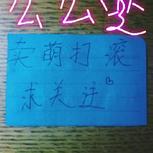 么么哒
卖萌打滚
求关注